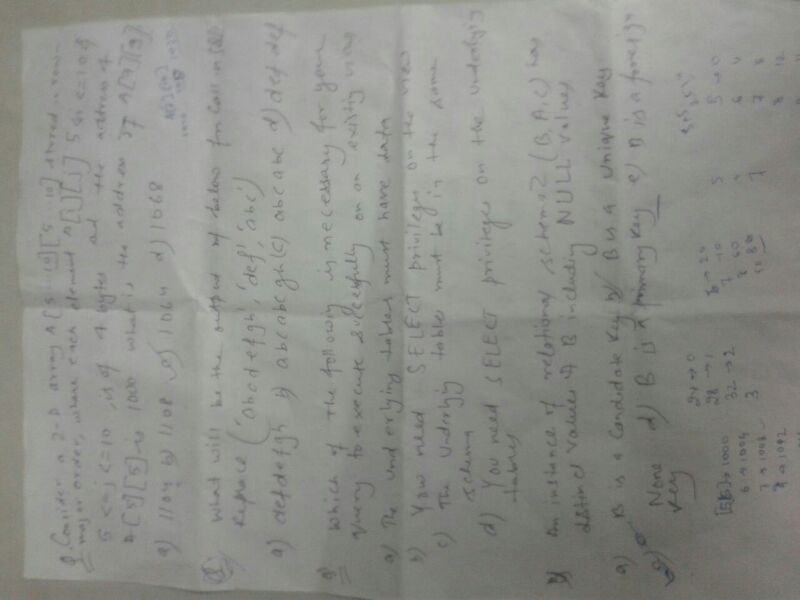 Q. Consider a 2-D array A[5...10][5...10] stored in row-
major order, where each element A[i][j] 5<=i<=10 &
5<=j<=10, is of 4 bytes and the address of
A[5][5] is 1000 what is the address of A[9][9]
a) 1104 b) 1108 c) 1064 d) 1068
Q What will be the output of below fn call in SQL
Replace ('abcdefgh','def','abc')
a) defdefgh b) abcabcgh (c) abcabc d) def def
Q Which of the following is necessary for your
query to execute succesfully on an existing view
a) The underlying tables must have data
b) You need SELECT privileges on the view
c) The underlying tables must be in the same
schema
d) You need SELECT privileges on the underlying
tables
An instance of relational schema (B,A,C) has
distinct values of B including NULL values
a) B is a candidate key b) B is a unique key
None d) B is a primary key e) B is a foreign
key
24→0
28→1
32→2
3
[5][5]→1000
6→1004
7→1008
5→20
7
8 60
5
7
5→0
6 4
7 8
8 12